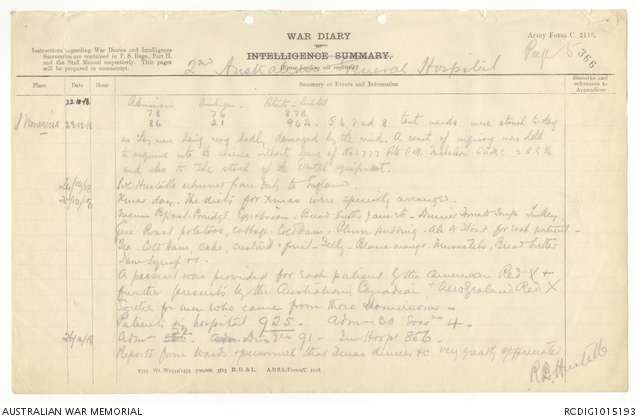 WAR DIARY
or
INTELLIGENCE SUMMARY.
(Erase heading not required)
Army Form C. 2118.
Page 5
366
Instructions regarding War Diaries and Intelligence
Summaries are contained in F. S. Regs., Part II.
and the Staff Manual respectively. Title pages
will be prepared in manuscript.
2nd Australian General Hospital
Place Date Hour Summary of Events and Information Remarks and references to Appendices
22.12.18 Admissions Discharges Patients in hospital
78 76 878
23.12.18 86 21 942. 5 6 7 and 8 tent wards were struck to-day
as they were being very badly damaged by the wind. A court of inquiry was held
to enquire into the absence without leave of No 2777 Pte
and also to take stock of the hospital equipment.
24/12/18 Col Huxtable returned from duty to England.
25/12/18 Xmas day. The diets for Xmas were specially arranged.
Menu Bkfast Porridge, Bread butter jam tea - Dinner Tomato Soup Turkey
Roast potatoes, cabbage Cold Ham. Plum pudding. Ale & Stout for each patient -
Tea. Cold Ham, cake, custard & fruit - Jelly - Blanc mange. Muscatels, Bread butter
A present was provided for each patient by the American Red X +
further presents by the Australian Canadian + New Zealand Red X
Societies for men who came from those Dominions -
Patients in hospital 925. Adm - 30 4.
26/12/18 Adm 22 Dis 91 - In Hospl 856.
Reports from wards & personnel that Xmas dinner &c very greatly appreciated
R.B. Huxtable
AUSTRALIAN WAR MEMORIAL
RCDIG1015193